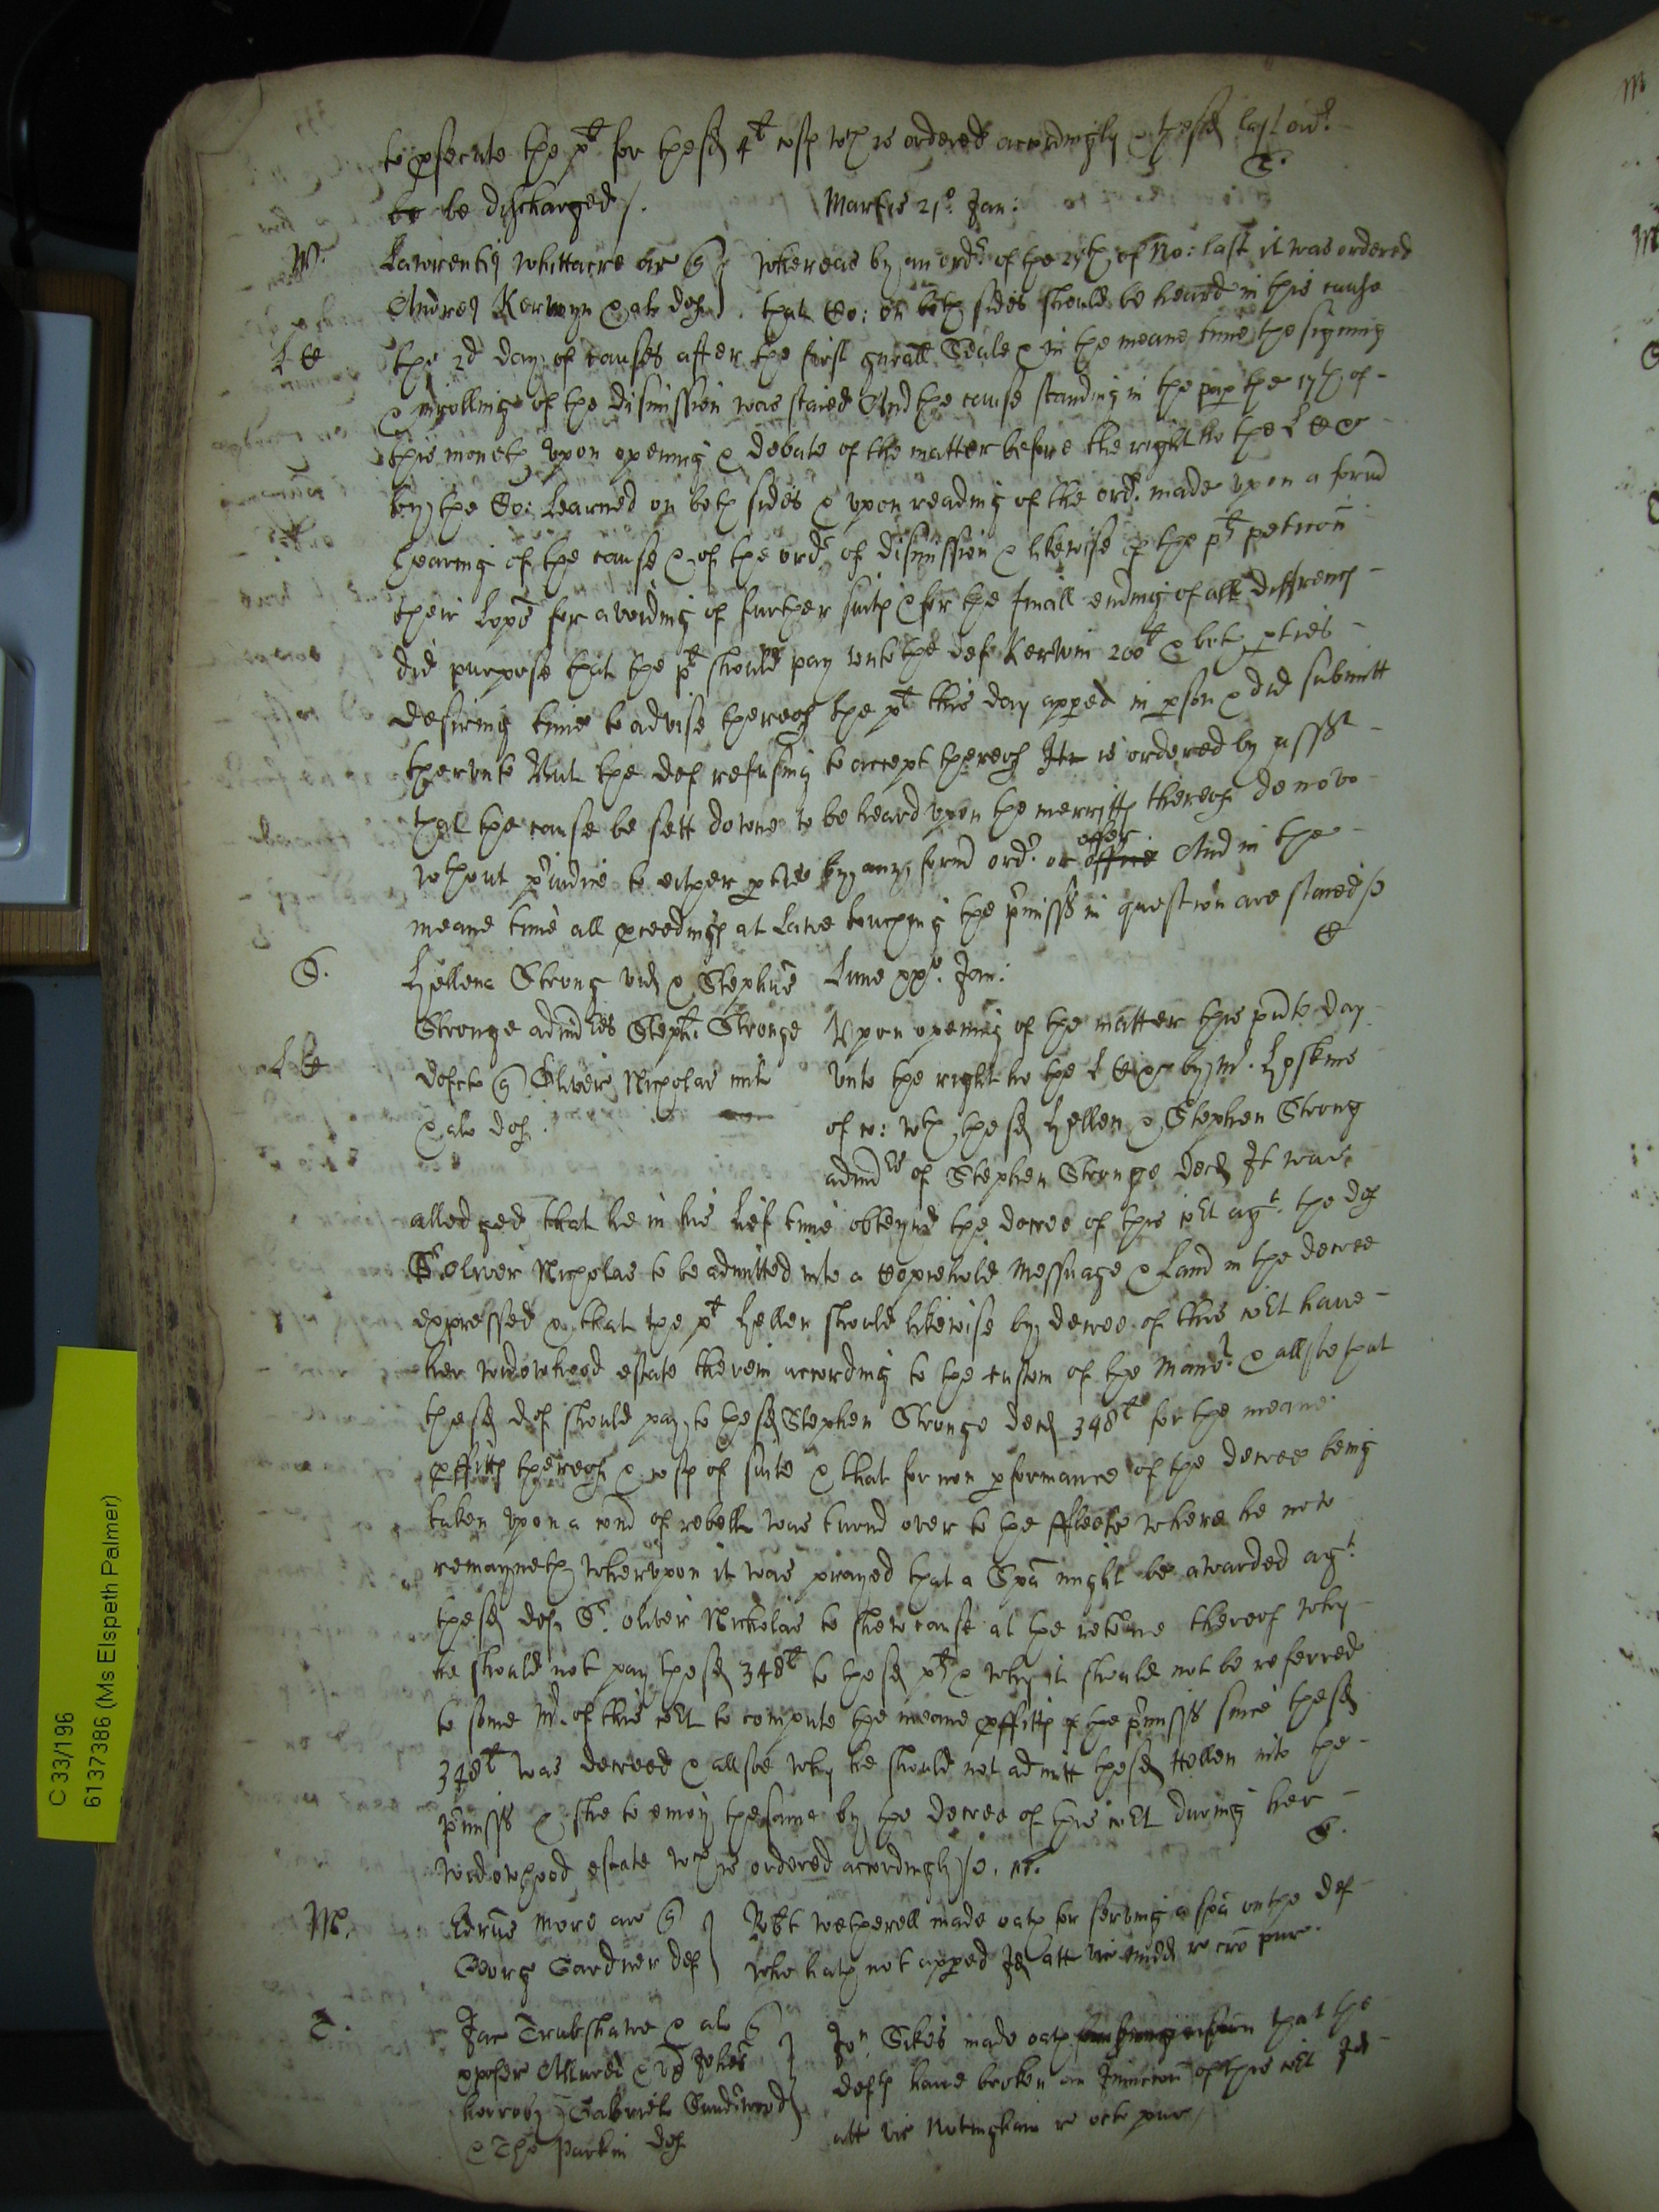 to psecute the plt for the sd 4l costs wch is ordered accordingly & the sd last ordr
be be discharged /. Martis 21o. Jan:
W. Lawrentius Whittacre ar q Whereas by an ordr of the 27th of No: last it was ordered
Andreas Kerwyn & al defs. that Co: on both sides should be heard in this cause
L C the 2d day of causes after the first gnrall Seale & in the meane time the signing
& inrolling of the dismission was staied And the cause standing in the pap the 17th of
this moneth Upon opening & debate of the matter before the right ho the L C
by the Co: Learned on both sides & upon reading of the ordr. made upon a formr
hearing of the cause & of the ordr of dismission & likewise of the plts petition
their Lopps for avoiding of further suits & for the finall ending of all differencs
did purpose that the plt should pay unto the def Kerwin 200l & both pties
desiring time to advise thereof the plt this day apped in pson & did submitt
therunto But the def refusing to accept thereof It is ordered by
that the cause be sett downe to be heard upon the merritts thereof de novo
wthout piudice to either ptie by any formr ordr. or offer offer And in the
meane time all pceedings at Lawe touching the pmisses in question are staied /
S. Hellena Strong vid & Stephus Lune xxo. Jan:
Stronge admrs Steph. Stronge Upon opening of the matter this pnte day
L C defct q Oliver Nicholas milt unto the right ho the L by Mr. Hoskins
& al def. of Co: wth the sd Hellen & Stephen Strong
admrs of Stephen Stronge decd It was
alledged that he in his lief time obteyned the decree of this Crt agt. the def
Sr. Oliver Nicholas to be admitted into a Copiehold Messuage & Land in the decree
expressed & that the plt Hellen should likewise by decree of this Crt have
her widowhood estate therein according to the custom of the Manor & allsoe that
the sd def should pay to the sd Stephen Stronge decd 348l for the meane
pffitts thereof & costs of suite & that for non pformance of the decree being
taken upon a comd of rebell was turnd over to the ffleete where he now
remayneth wherupon it was prayed that a Spa might be awarded agt.
the sd def Sr. Oliver Nicholas to shew cause at the retorne thereof why
he should not pay the sd 348l to the sd plt & why it should not be referred
to some Mr. of this Crt to compute the meane pffitts of the pmisses since the sd
348l was decreed & allsoe why he should not admitt the sd Hellen into the
pmisses & she to enioy the same by the decree of this Crt during her
widowhood estate wch is ordered accordingly /
M. Edrus More ar q Robt Wetherell made oath for serving a spa on the def
Georg Gardner def who hath not apped
T. Jac Trubshawe & al q Jon. Sikes made oath that the
defts have broken an Iniuncon of this Crt
Gabriele
& Tho Parkin def att vic Notingham
C 33/196
6137386 (Ms Elspeth Palmer)